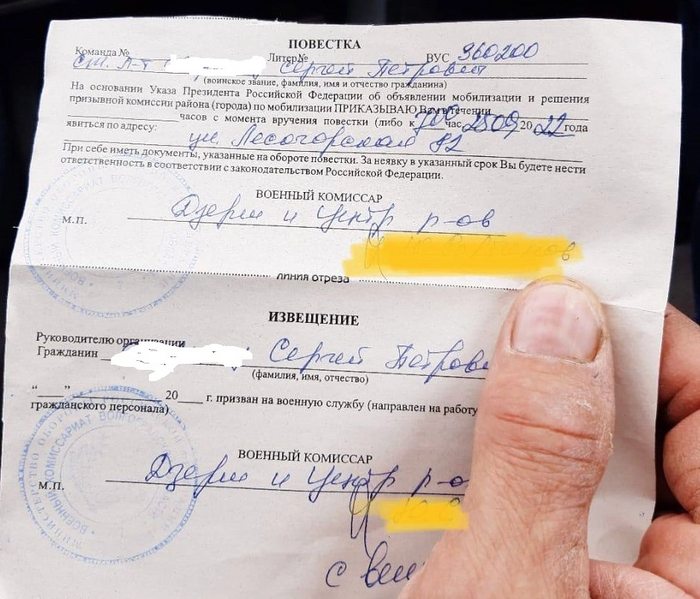 ПОВЕСТКА
Команда № Литер№ ВУС 360200
Ст. л-т Сергей Петрович
(воинское звание, фамилия, имя и отчество гражданина)
На основании Указа Президента Российской Федерации об объявлении мобилизации и решения
призывной комиссии района (города) по мобилизации ПРИКАЗЫВАЮ Вам в течении
часов с момента вручения повестки (либо к 700 час 2509 2022 года
явиться по адресу: ул. Лесогорская 82
При себе иметь документы, указанные на обороте повестки. За неявку в указанный срок Вы будете нести
ответственность в соответствии с законодательством Российской Федерации.
ВОЕННЫЙ КОМИССАР
Дзерж и Центр р-ов
М.П.
линия отреза
ИЗВЕЩЕНИЕ
Руководителю организации
Гражданин Сергей Петрович
(фамилия, имя, отчество)
“____” 20___ г. призван на военную службу (направлен на работу
гражданского персонала)
ВОЕННЫЙ КОМИССАР
Дзерж и Центр р-о
М.П.
с вещ